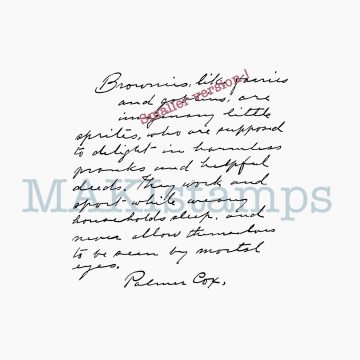 Brownies, like fairies
and goblins, are
imaginary little
sprites, who are supposed
to delight in harmless
pranks and helpful
deeds. They work and
sport while weary
households sleep, and
never allow themselves
to be seen by mortal
eyes.
Palmer Cox.
Smaller version!
MAKIstamps